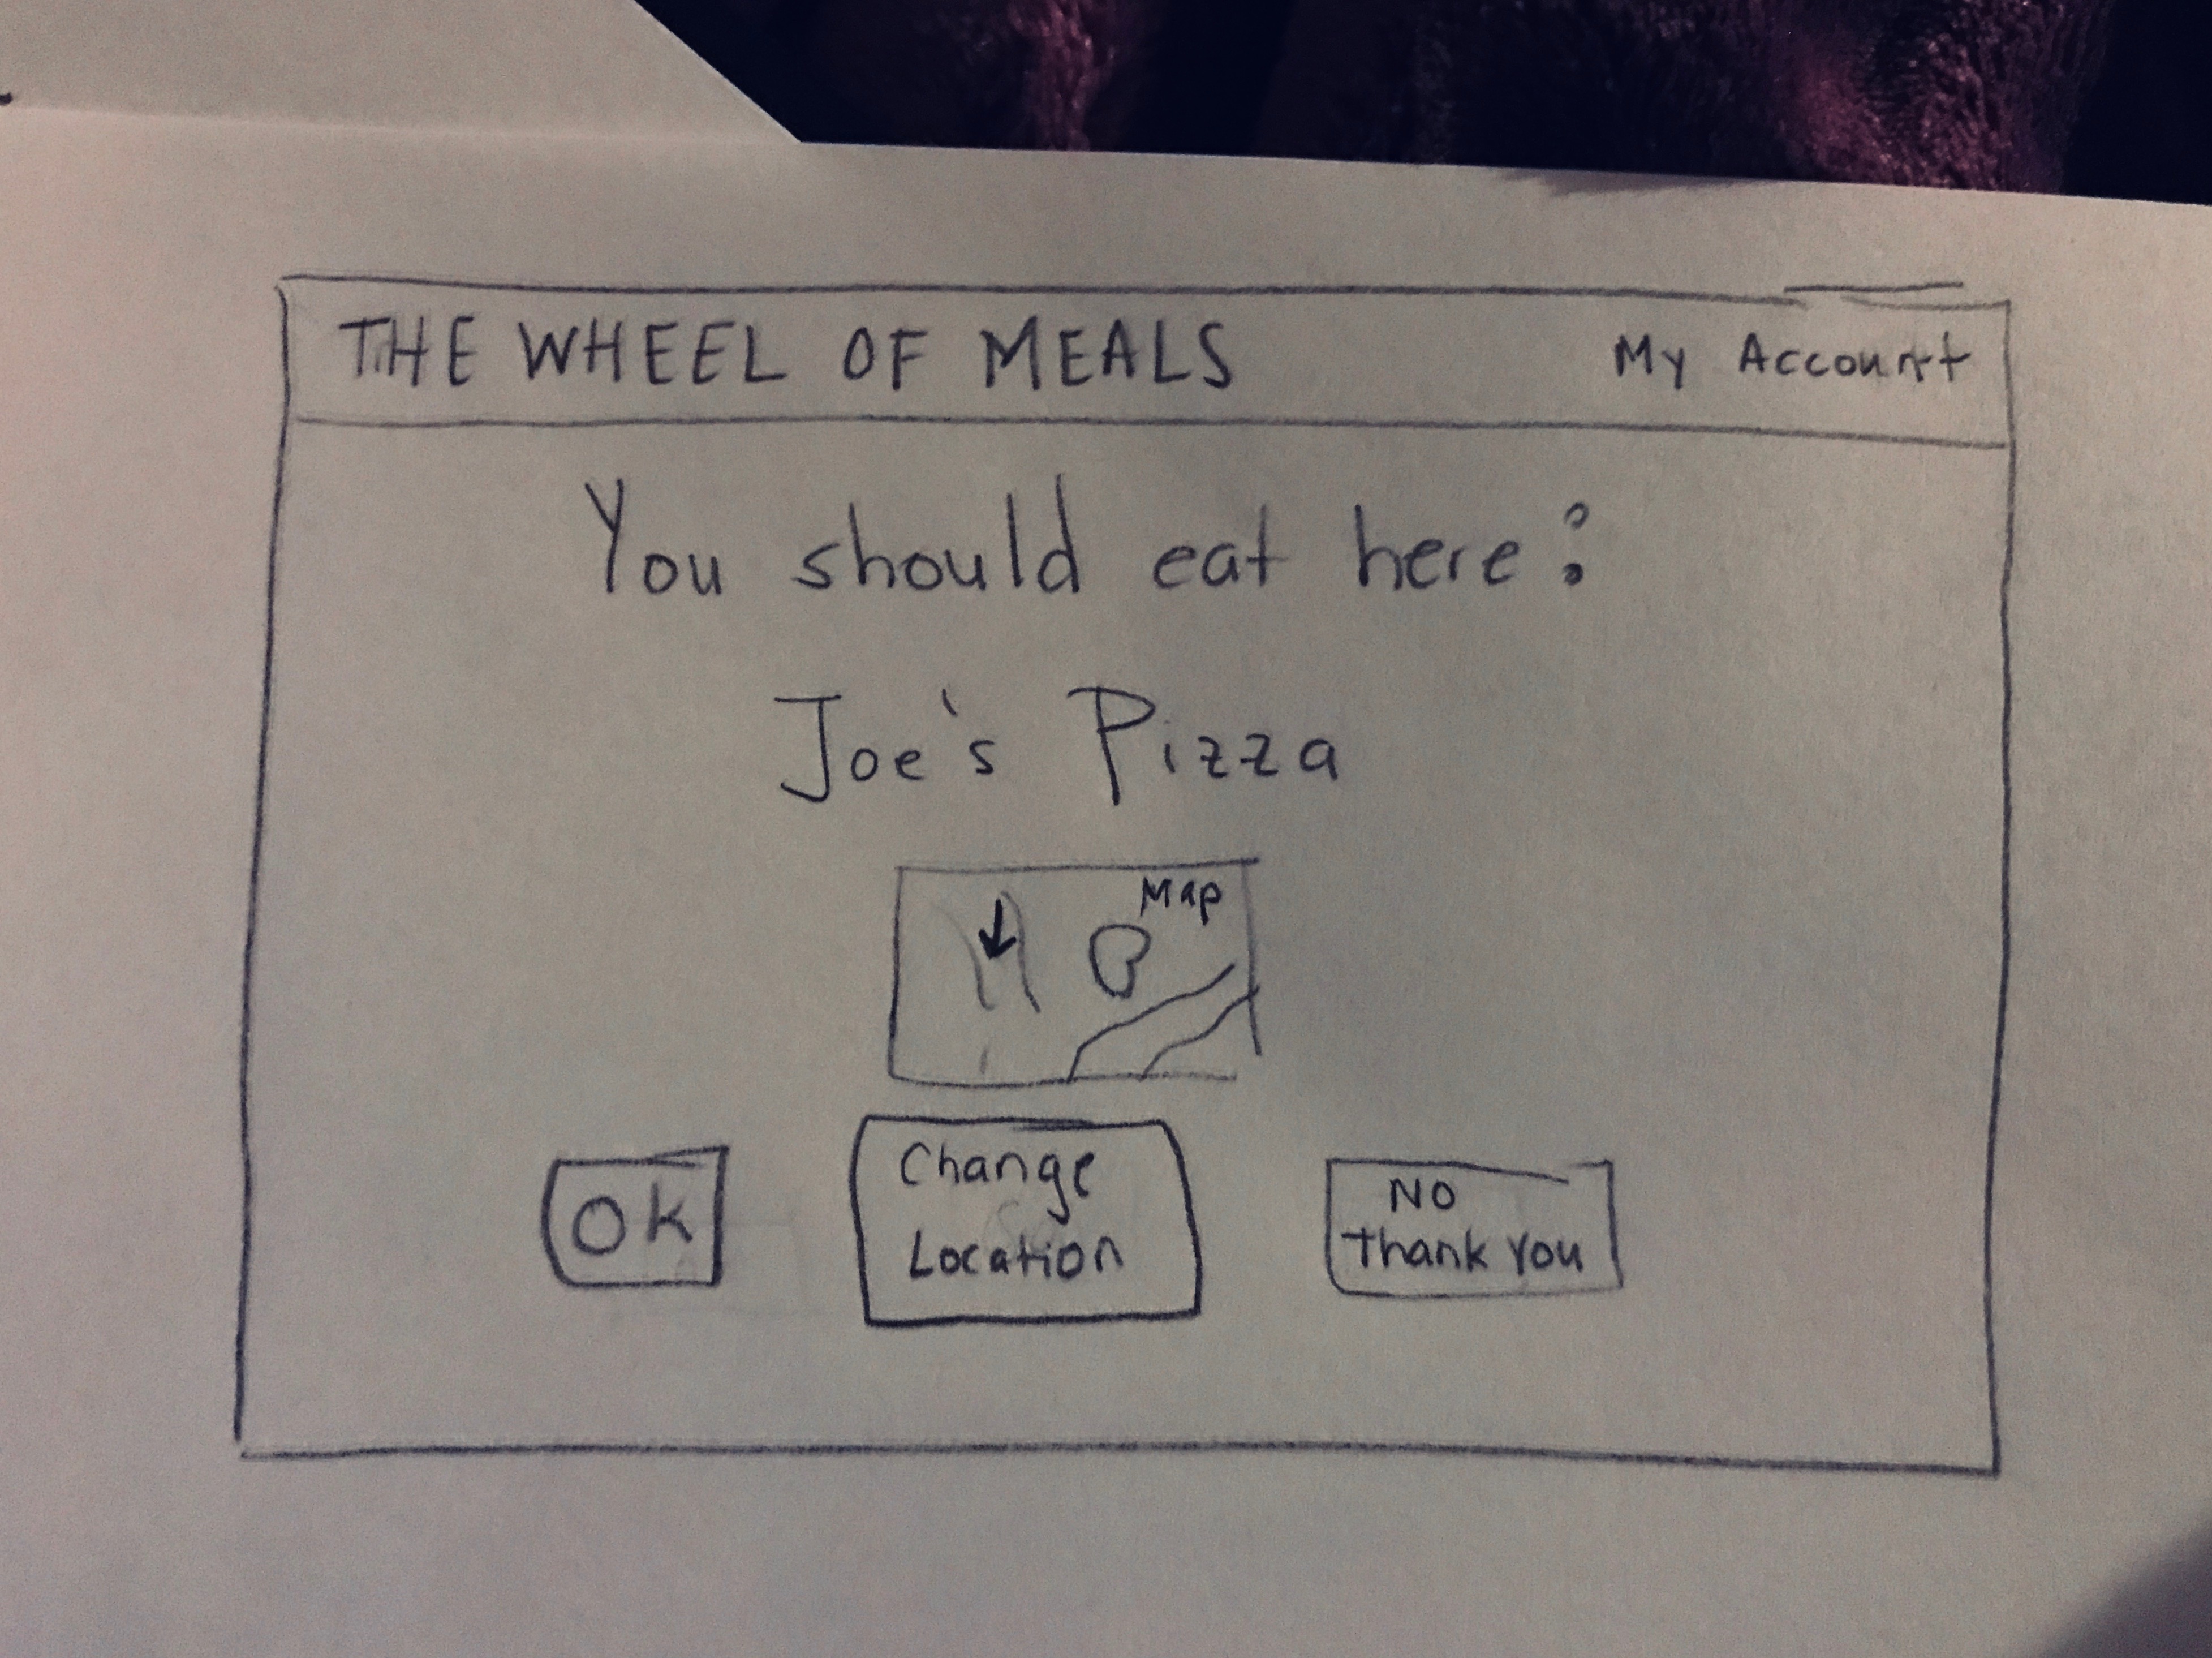 THE WHEEL OF MEALS My Account
You should eat here:
Joe's Pizza
Map
OK
Change
Location
NO
Thank You